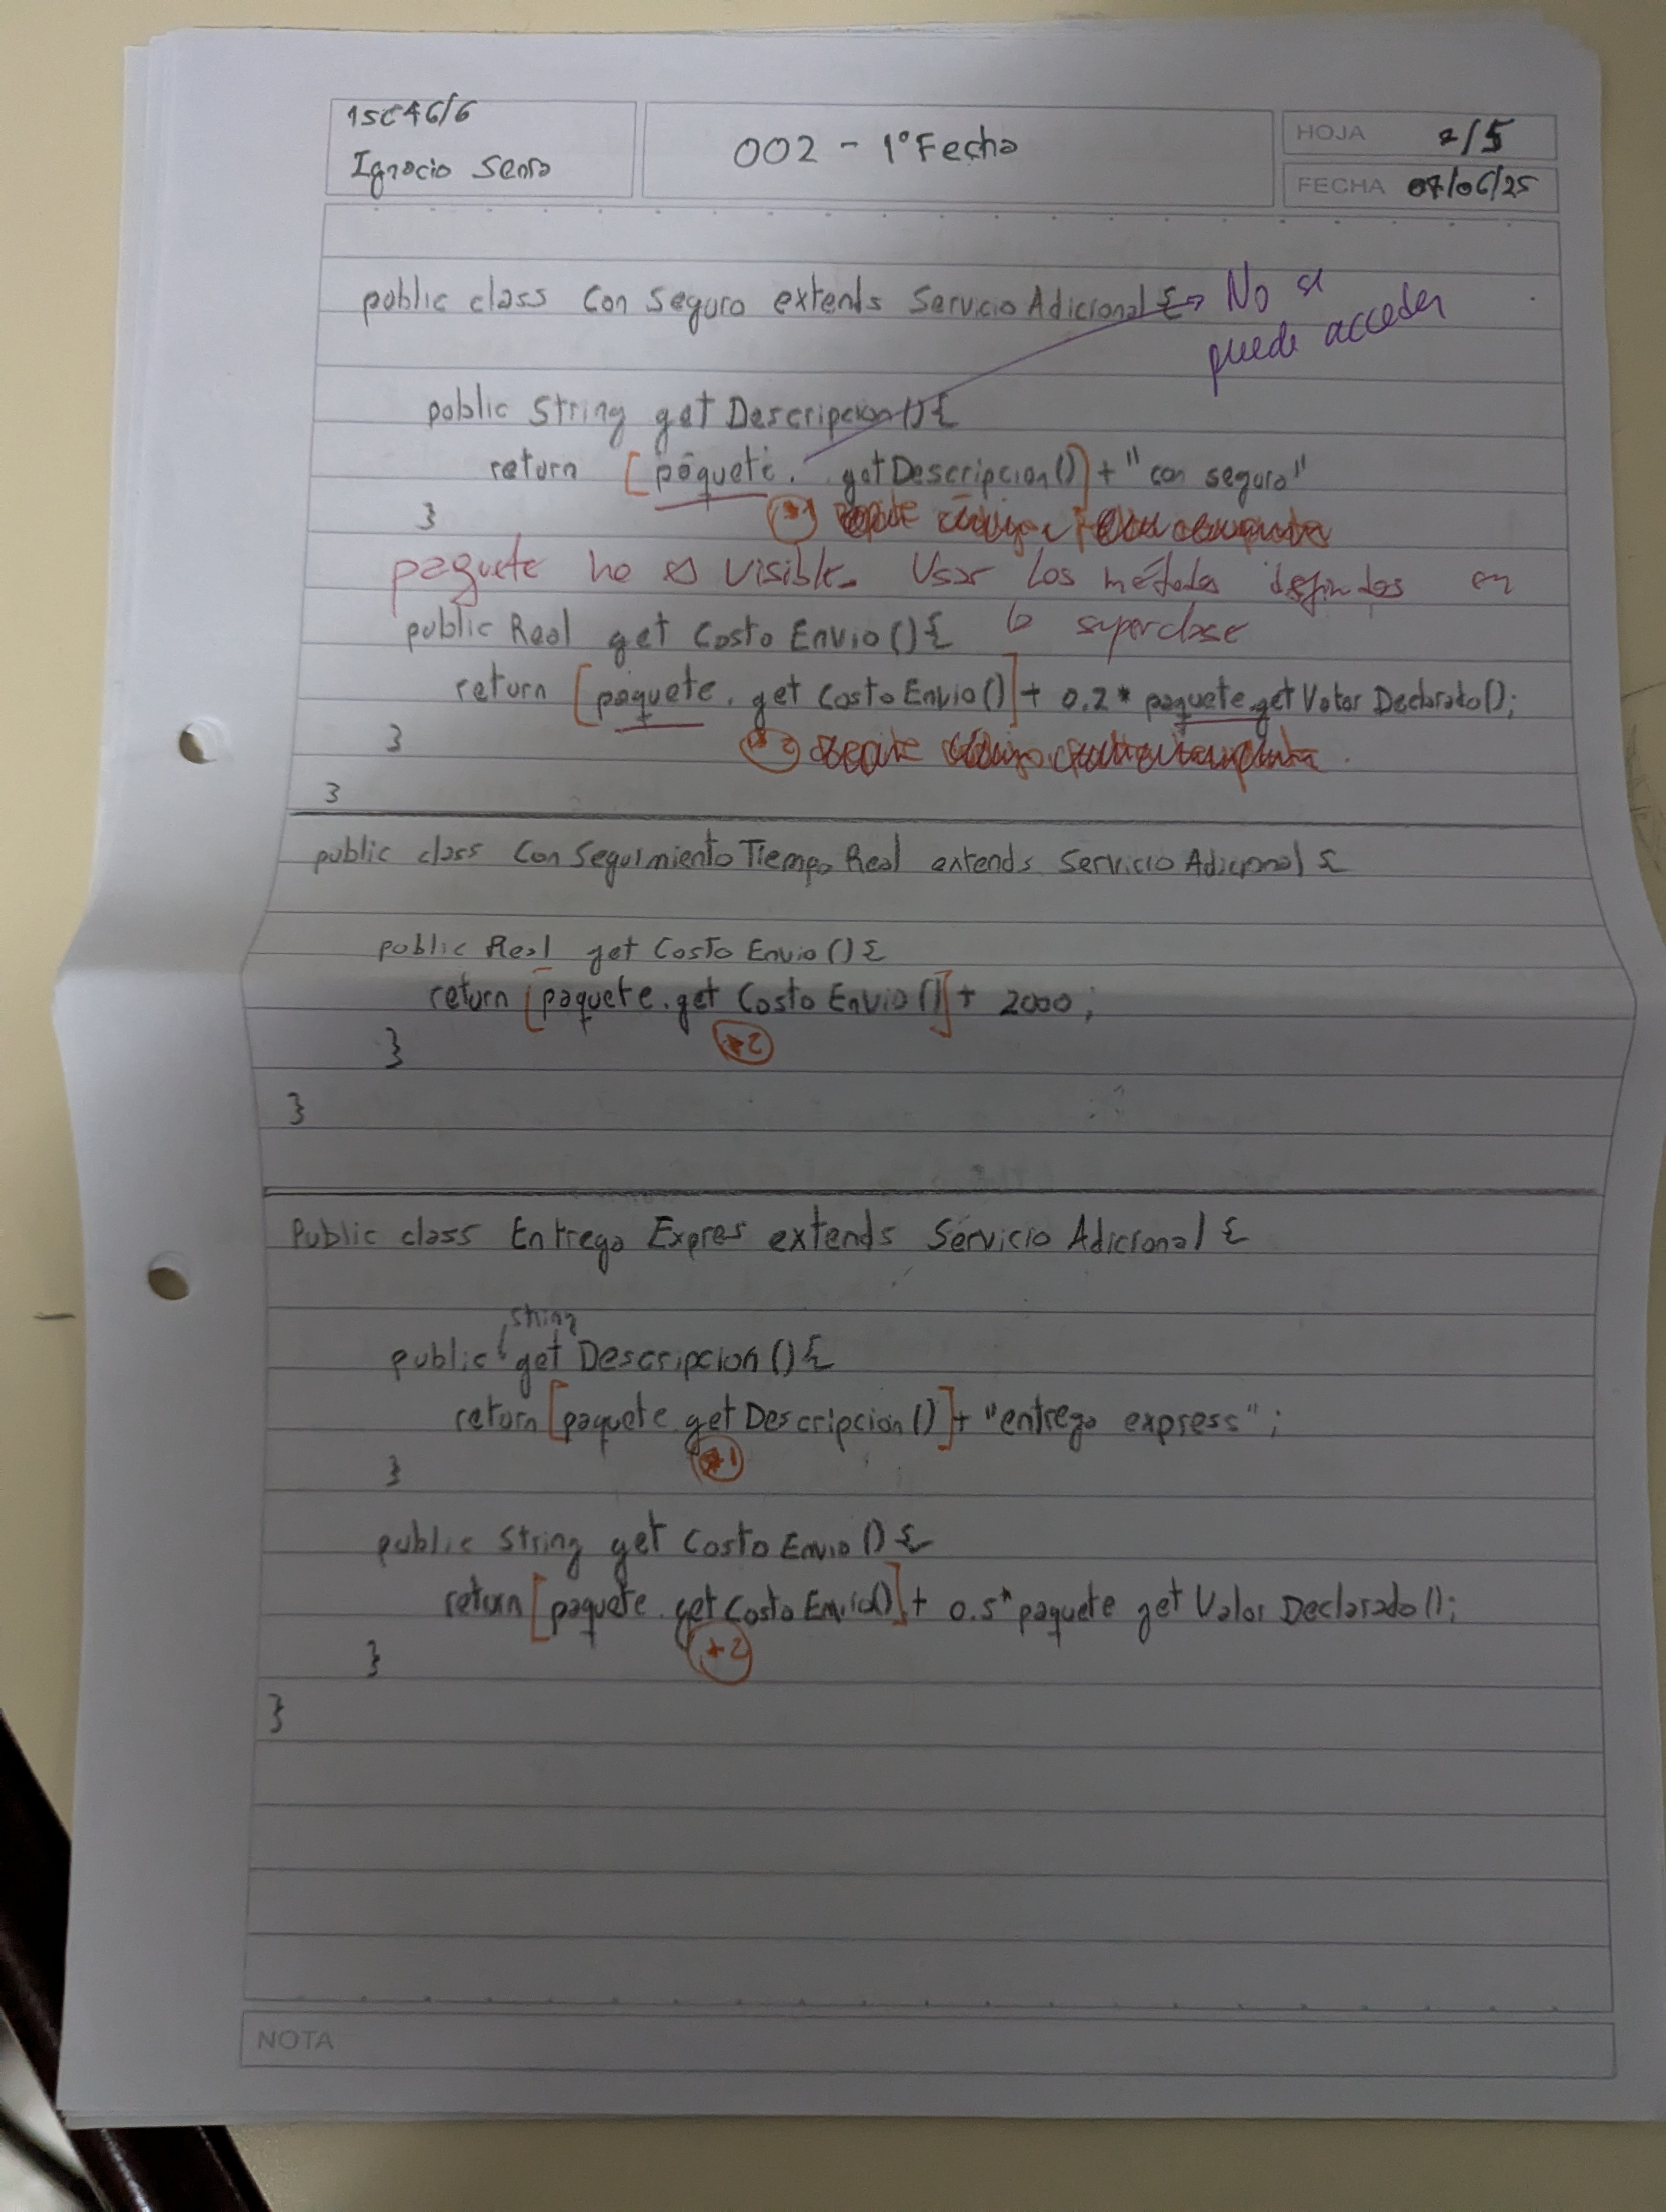 Ignacio
OO2 - 1° Fecha
HOJA 2/5
FECHA 07/06/25
public class Con Seguro extends Servicio Adicional {
No se
puede acceder
public String get Descripcion() {
return [paquete. getDescripcion()] + "con seguro"
}
*1
paquete no es visible. Usar los métodos definidos en
la superclase
public Real get Costo Envio() {
return [paquete. get Costo Envio()] + 0.2 * paquete.get Valor Declarado();
}
*2
}
public class Con Seguimiento Tiempo Real extends Servicio Adicional {
public Real get Costo Envio() {
return [paquete.get Costo Envio()] + 2000;
*2
}
}
Public class Entrega Expres extends Servicio Adicional {
String
public get Descripcion() {
return [paquete.get Descripcion()] + "entrega express";
*1
}
public String get Costo Envio() {
return [paquete. get Costo Envio()] + 0.5* paquete get Valor Declarado();
*2
}
}
NOTA